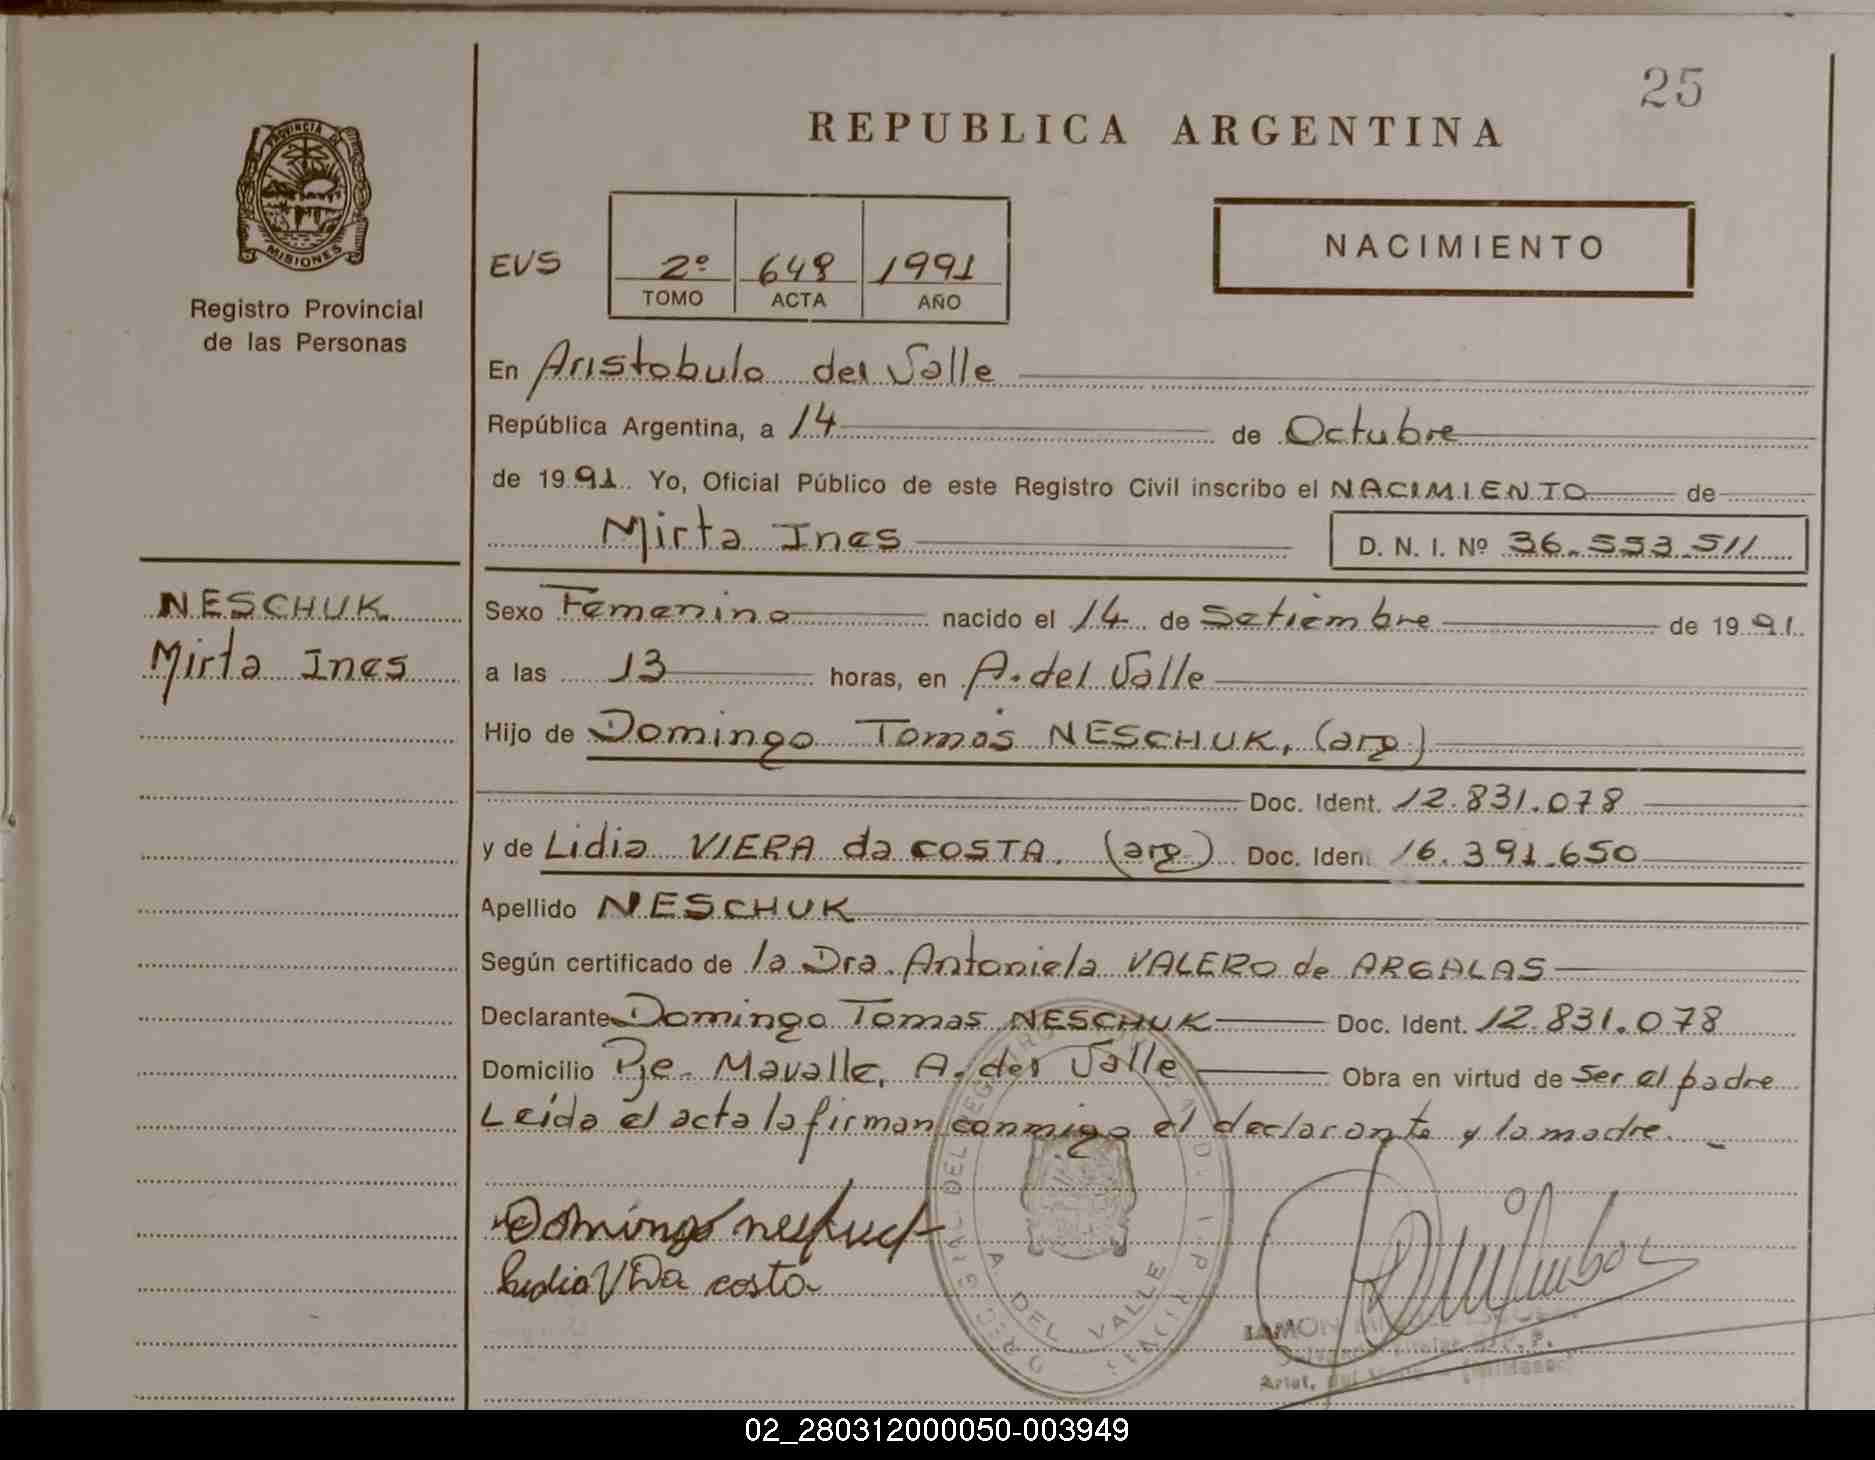 25
REPUBLICA ARGENTINA
PROVINCIA DE
MISIONES
Registro Provincial
de las Personas
EVS
2º 648 1991
TOMO ACTA AÑO
NACIMIENTO
En Aristobulo del Valle
República Argentina, a 14 de Octubre
de 1991. Yo, Oficial Público de este Registro Civil inscribo el NACIMIENTO de
Mirta Ines D. N. I. Nº 36.553.511
NESCHUK
Mirta Ines
Sexo Femenino nacido el 14 de Setiembre de 1991.
a las 13 horas, en A. del Valle
Hijo de Domingo Tomás NESCHUK, (arg)
Doc. Ident. 12.831.078
y de Lidia VIERA da COSTA. (arg) Doc. Ident 16.391.650
Apellido NESCHUK
Según certificado de la Dra. Antoniela VALERO de ARGALAS
Declarante Domingo Tomas NESCHUK Doc. Ident. 12.831.078
Domicilio Pje. Mavalle, A. del Valle Obra en virtud de ser el padre
Leída el acta la firman conmigo el declarante y la madre.
Domingo
Lidia V Da costa
A. DEL VALLE
02_280312000050-003949